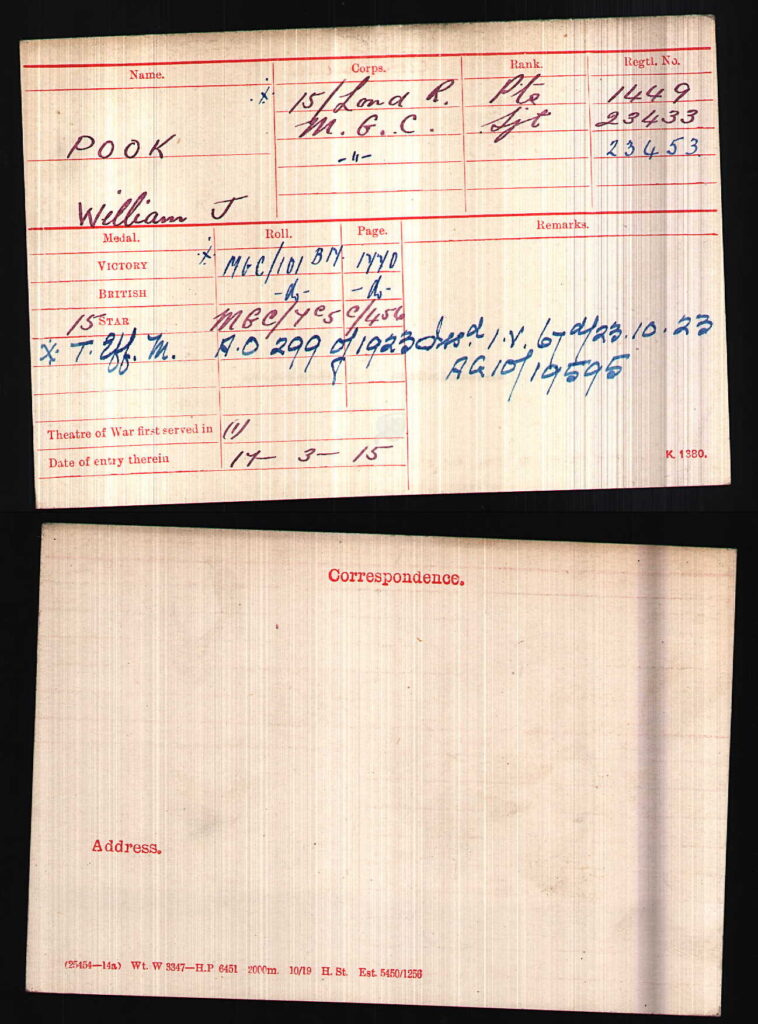 Name. Corps. Rank. Regtl. No.
x 15/Lond R. Pte 1449
M. G. C. Sjt 23433
POOK -"- 23453
William J
Medal. Roll. Page. Remarks.
VICTORY x MGC/101 BM. 1770
BRITISH -do- -do-
15 STAR MGC/7C5 C/456
x T. Eff. M. A.O 299 of/1923 Issd. I.V. 67 d/23.10.23
AG10/19595
Theatre of War first served in (1)
Date of entry therein 17- 3- 15
K. 1380.
Correspondence.
Address.
(25454—14a) Wt. W 3347—H.P 6451 2000m. 10/19 H. St. Est. 5450/1256